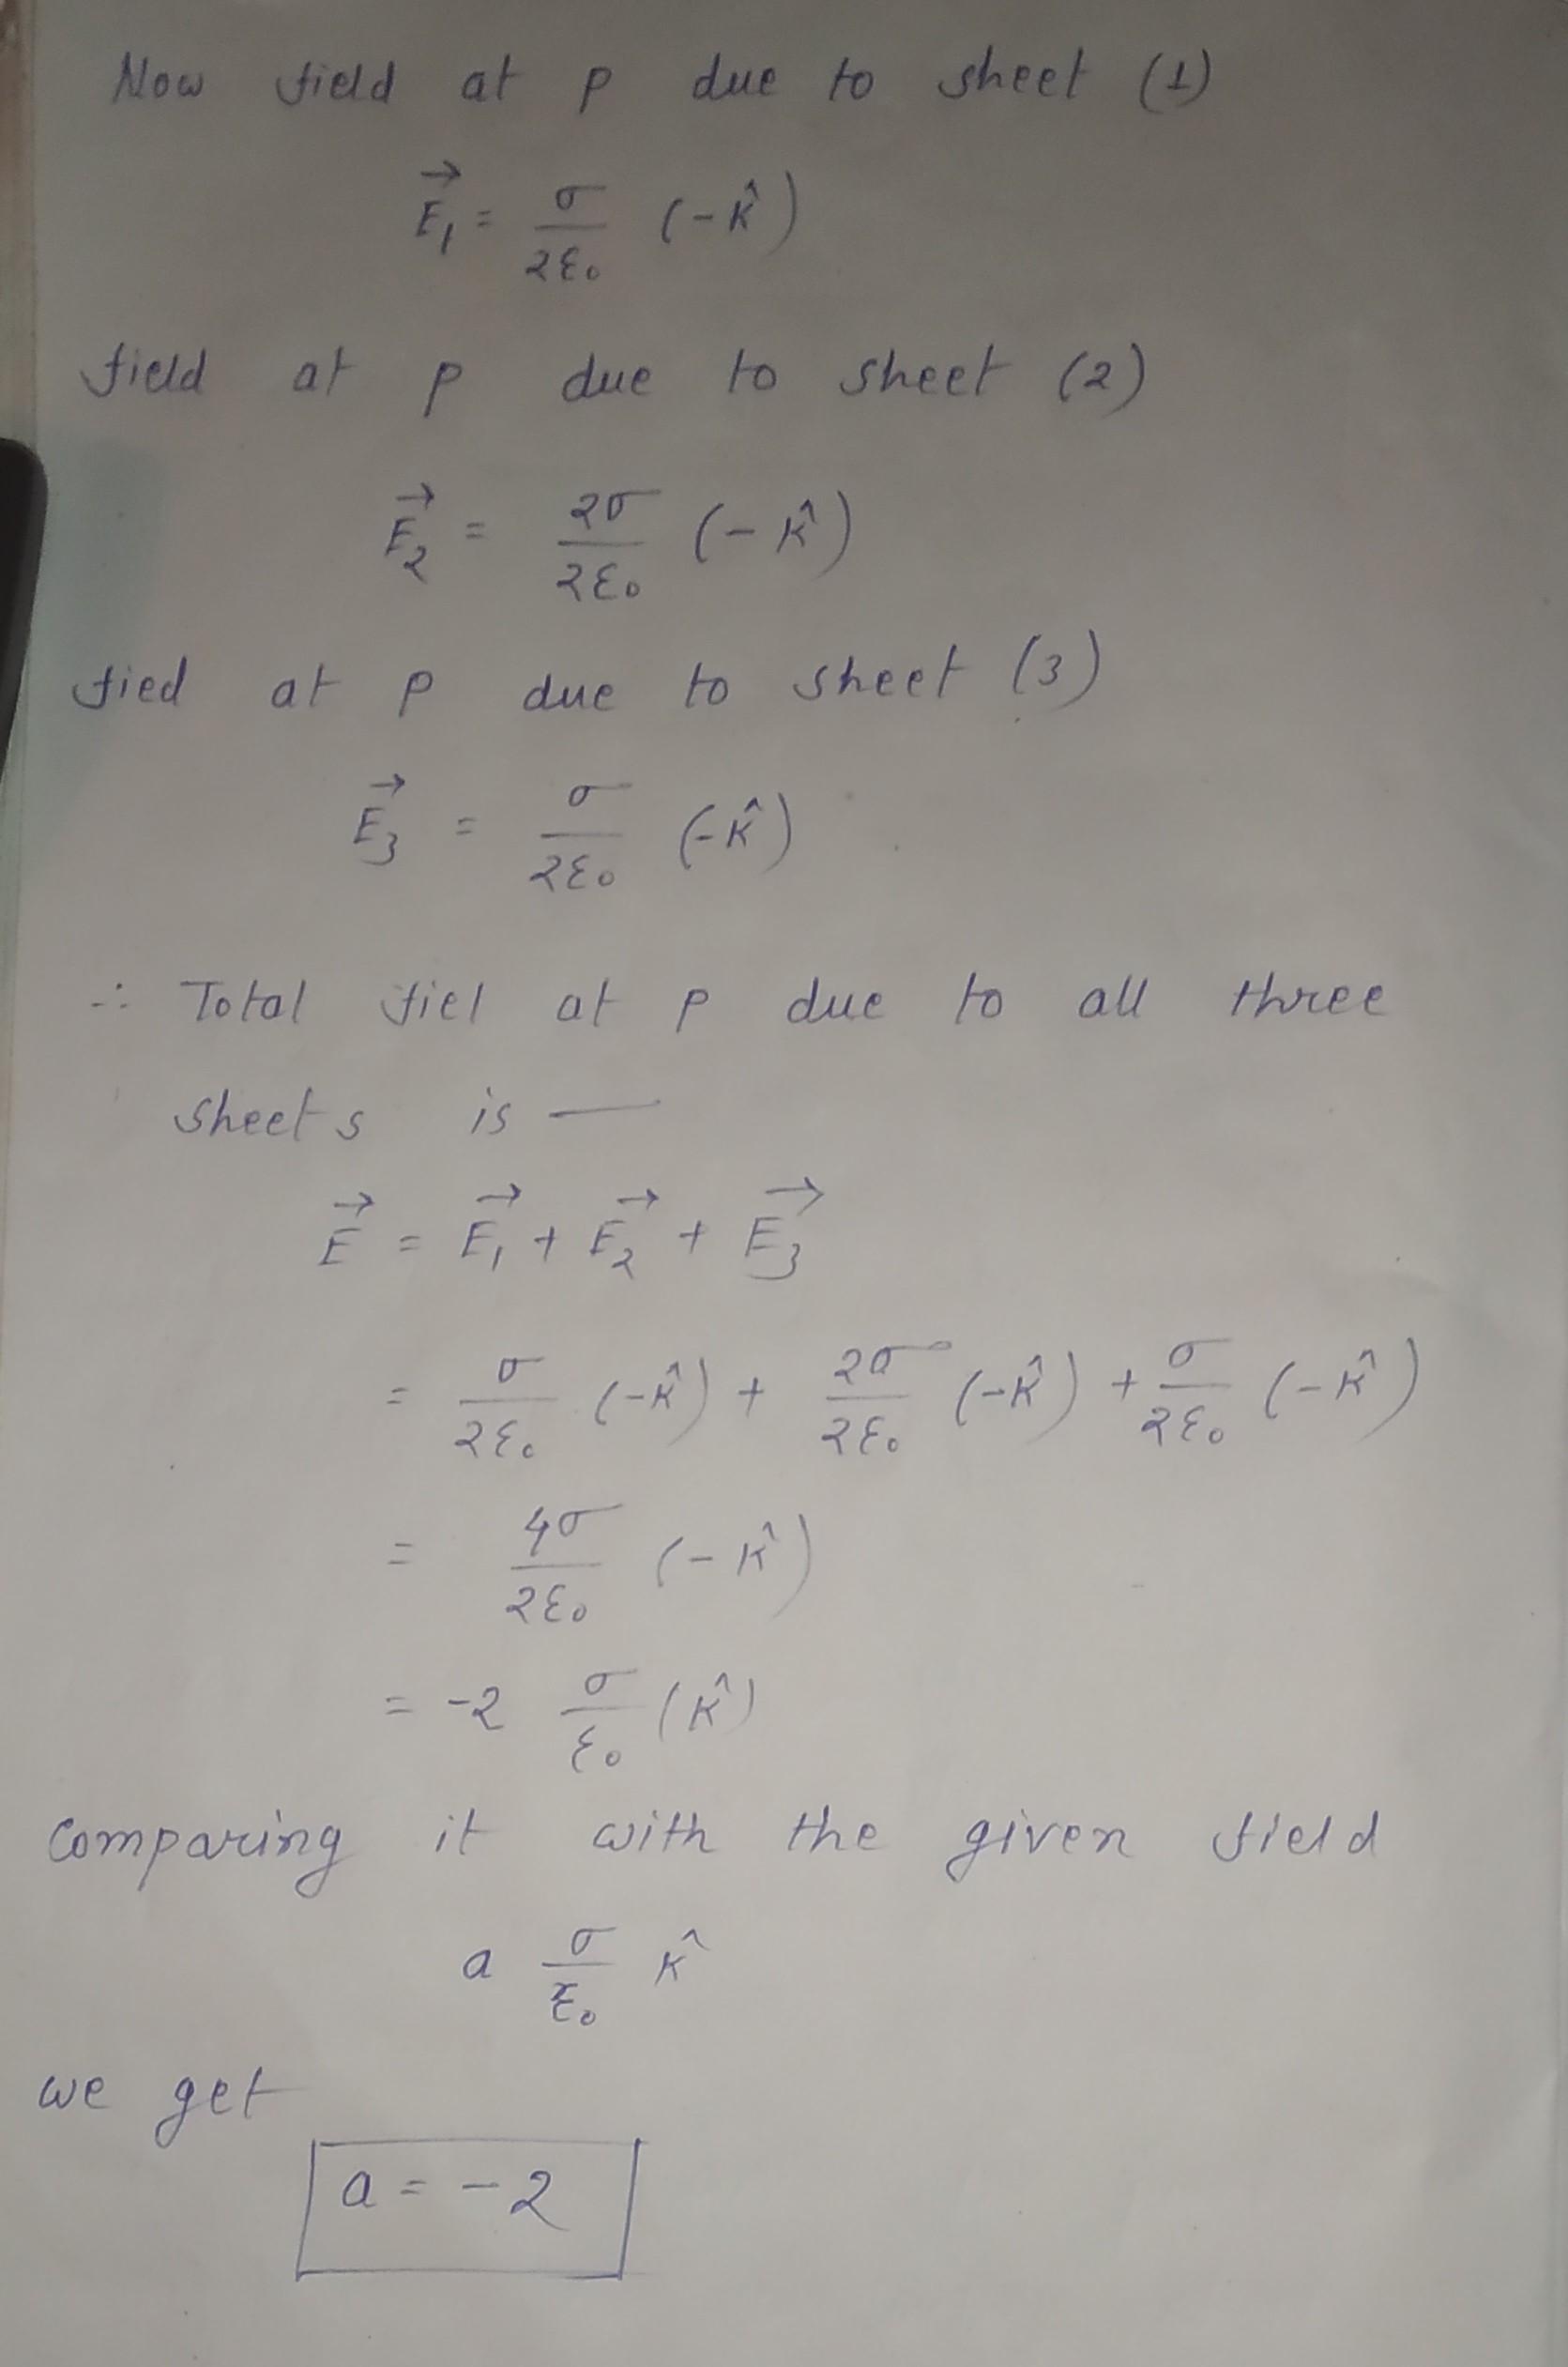 Now field at p due to sheet (1)
E⃗₁ = σ/2ε₀ (-k̂)
field at p due to sheet (2)
E⃗₂ = 2σ/2ε₀ (-k̂)
fied at p due to sheet (3)
E⃗₃ = σ/2ε₀ (-k̂)
∴ Total fiel at p due to all three
sheets is —
E⃗ = E⃗₁ + E⃗₂ + E⃗₃
= σ/2ε₀ (-k̂) + 2σ/2ε₀ (-k̂) + σ/2ε₀ (-k̂)
= 4σ/2ε₀ (-k̂)
= -2 σ/ε₀ (k̂)
comparing it with the given field
a σ/ε₀ k̂
we get
a = -2